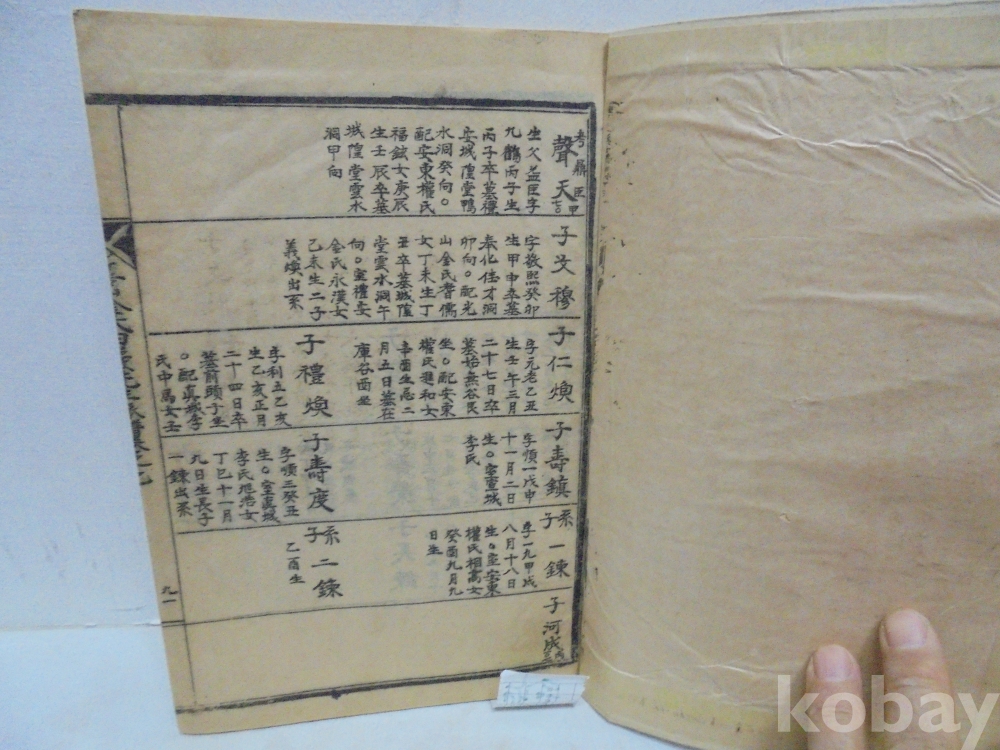 考鼎臣甲
聲天
生父益臣字
九鶴丙子生
丙子卒墓禮
安城隍堂鴨
水洞癸向○
配安東權氏
福鉉女庚辰
生壬辰卒墓
城隍堂雲水
洞甲向
子文穆
字敬熙癸卯
生甲申卒墓
奉化佳才洞
卯向○配光
山金氏耆儒
女丁未生丁
丑卒墓城隍
堂雲水洞午
向○室禮安
金氏永漢女
乙未生二子
義煥出系
子仁煥
字元老乙丑
生壬午三月
二十七日卒
墓始無谷艮
坐○配安東
權氏進和女
辛酉生忌二
月五日墓在
庫谷酉坐
子禮煥
字利五乙亥
生乙亥正月
二十四日卒
墓前頭子坐
○配真城李
氏中萬女壬
子壽鎮
字順一戊申
十一月二日
生○室宣城
李氏
子壽度
字順三癸丑
生○室真城
李氏旭浩女
丁巳十一月
九日生長子
一鍊出系
系子一鍊
字一九甲戌
八月十八日
生○室安東
權氏相高女
癸酉九月九
日生
系子二鍊
乙酉生
子河成
九一
kobay